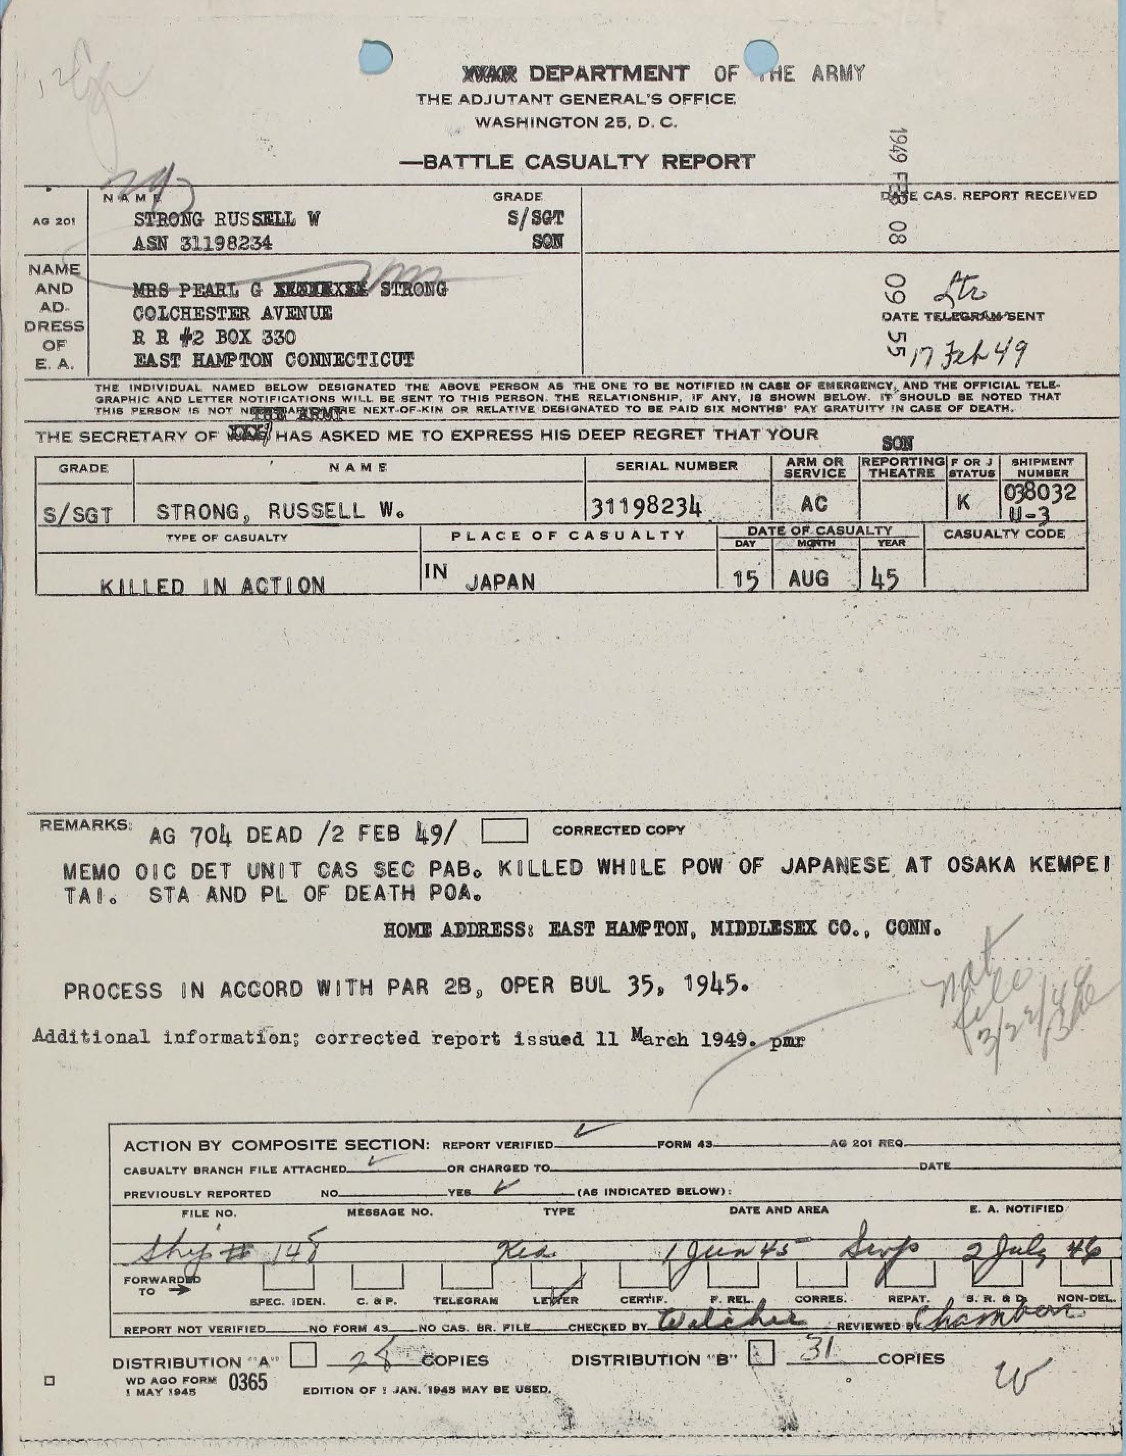 DEPARTMENT OF THE ARMY
THE ADJUTANT GENERAL'S OFFICE
WASHINGTON 25, D. C.
—BATTLE CASUALTY REPORT
1949 FEB 08 09 55
AG 201
NAME GRADE
STRONG RUSSELL W S/SGT
ASN 31198234 SON
DATE CAS. REPORT RECEIVED
NAME AND AD- DRESS OF E. A.
MRS PEARL G STRONG
COLCHESTER AVENUE
R R #2 BOX 330
EAST HAMPTON CONNECTICUT
DATE TELEGRAM SENT
17 Feb 49
THE INDIVIDUAL NAMED BELOW DESIGNATED THE ABOVE PERSON AS THE ONE TO BE NOTIFIED IN CASE OF EMERGENCY, AND THE OFFICIAL TELE-
GRAPHIC AND LETTER NOTIFICATIONS WILL BE SENT TO THIS PERSON. THE RELATIONSHIP, IF ANY, IS SHOWN BELOW. IT SHOULD BE NOTED THAT
THIS PERSON IS NOT NECESSARILY THE NEXT-OF-KIN OR RELATIVE DESIGNATED TO BE PAID SIX MONTHS' PAY GRATUITY IN CASE OF DEATH.
THE ARMY
THE SECRETARY OF HAS ASKED ME TO EXPRESS HIS DEEP REGRET THAT YOUR SON
GRADE NAME SERIAL NUMBER ARM OR SERVICE REPORTING THEATRE F OR J STATUS SHIPMENT NUMBER
S/SGT STRONG, RUSSELL W. 31198234 AC K 038032 U-3
TYPE OF CASUALTY PLACE OF CASUALTY DATE OF CASUALTY CASUALTY CODE
DAY MONTH YEAR
KILLED IN ACTION IN JAPAN 15 AUG 45
REMARKS: AG 704 DEAD /2 FEB 49/ CORRECTED COPY
MEMO OIC DET UNIT CAS SEC PAB. KILLED WHILE POW OF JAPANESE AT OSAKA KEMPEI
TAI. STA AND PL OF DEATH POA.
HOME ADDRESS: EAST HAMPTON, MIDDLESEX CO., CONN.
PROCESS IN ACCORD WITH PAR 2B, OPER BUL 35, 1945.
Additional information; corrected report issued 11 March 1949. pmr
ACTION BY COMPOSITE SECTION: REPORT VERIFIED FORM 43 AG 201 REQ
CASUALTY BRANCH FILE ATTACHED OR CHARGED TO DATE
PREVIOUSLY REPORTED NO YES (AS INDICATED BELOW):
FILE NO. MESSAGE NO. TYPE DATE AND AREA E. A. NOTIFIED
Ship # 148 1 Jun 45 2 July 46
FORWARDED TO
SPEC. IDEN. C. & P. TELEGRAM LETTER CERTIF. F. REL. CORRES. REPAT. S. R. & D. NON-DEL.
REPORT NOT VERIFIED NO FORM 43 NO CAS. BR. FILE CHECKED BY REVIEWED BY Chambers
DISTRIBUTION "A" 28 COPIES DISTRIBUTION "B" 31 COPIES
WD AGO FORM 0365
1 MAY 1945
EDITION OF 1 JAN. 1945 MAY BE USED.
W